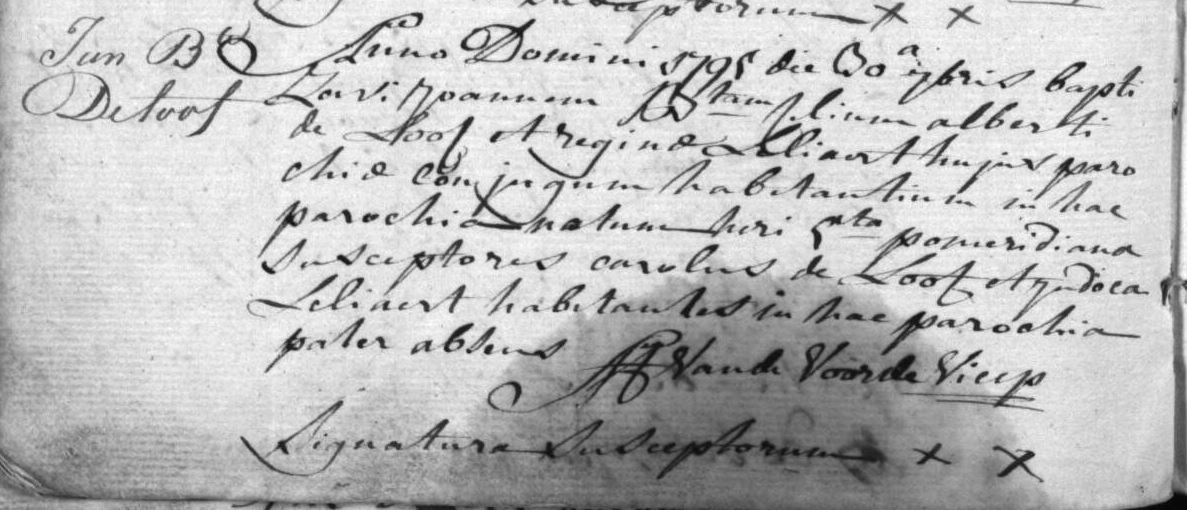 susceptorum x x
Jun Bta
De Loof
Anno Domini 1795 die 30a 7bris bapti
zavi joannem Bstam filium alberti
de Loof et reginæ Leliaert hujus paro
chiæ conjugum habitantium in hac
parochia natum heri 5nta pomeridiana
susceptores carolus de Loof et judoca
Leliaert habitantes in hac parochia
pater absens Vande Voorde Vicep
Signatura susceptorum x x